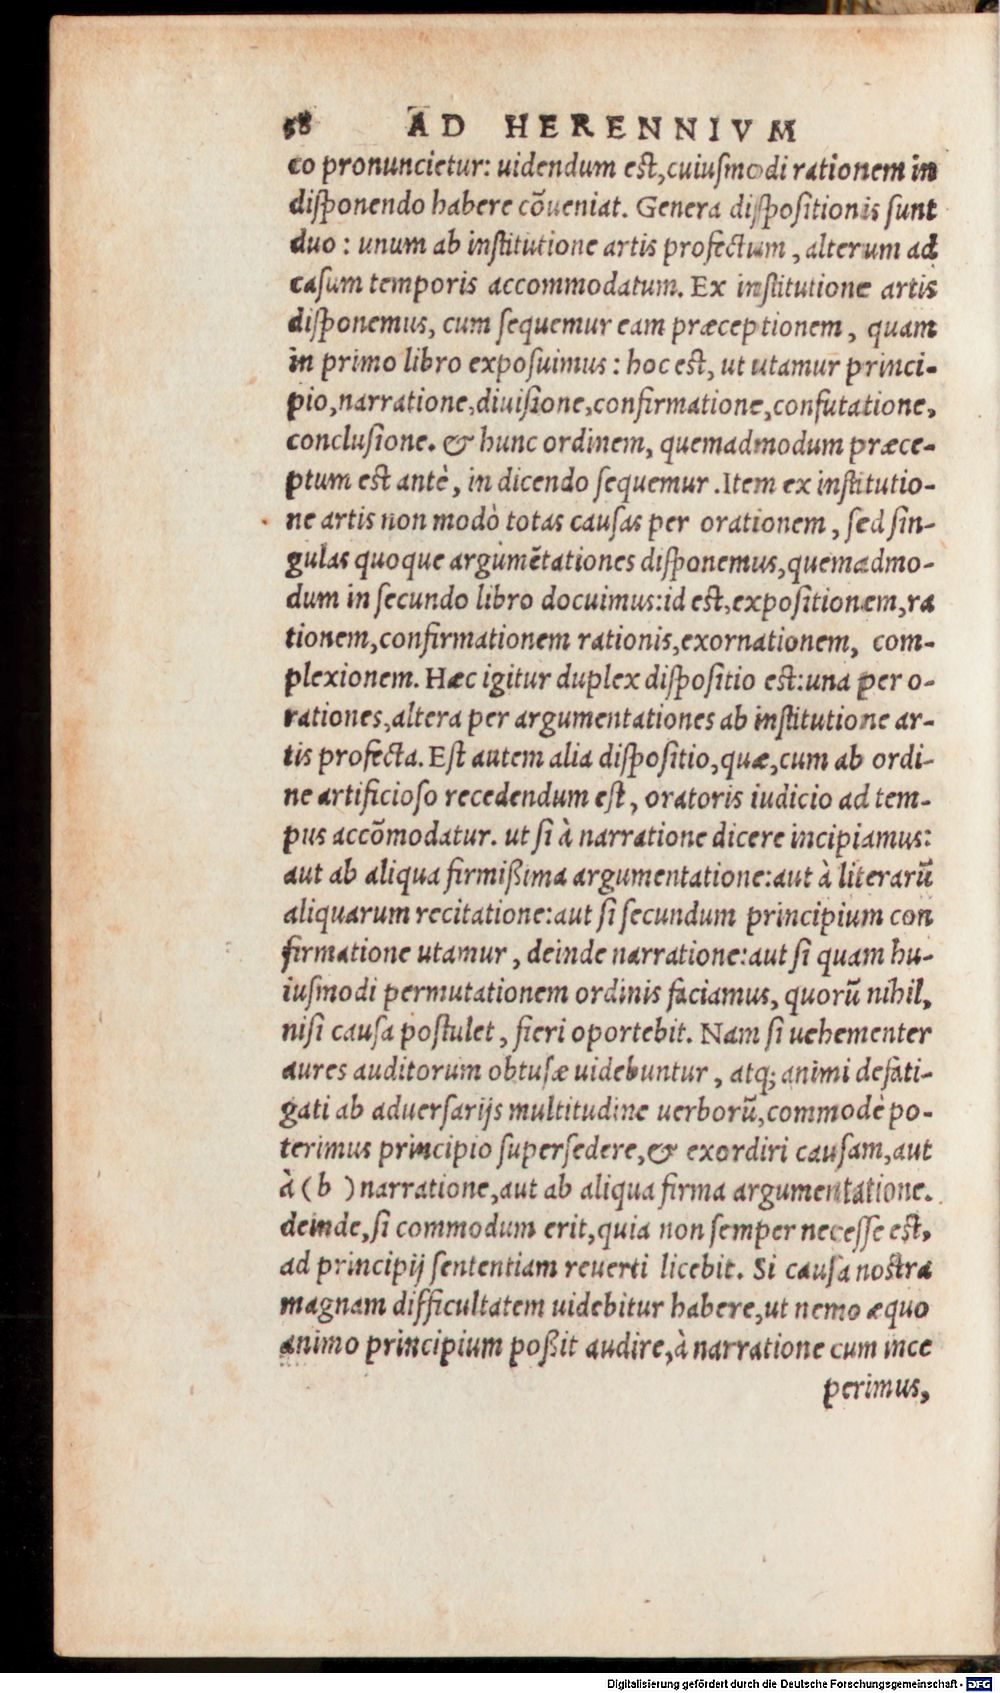 58 AD HERENNIVM
eo pronuncietur: uidendum est, cuiusmodi rationem in
disponendo habere cõueniat. Genera dispositionis sunt
duo: unum ab institutione artis profectum, alterum ad
casum temporis accommodatum. Ex institutione artis
disponemus, cum sequemur eam præceptionem, quam
in primo libro exposuimus: hoc est, ut utamur princi-
pio, narratione, diuisione, confirmatione, confutatione,
conclusione. & hunc ordinem, quemadmodum præce-
ptum est antè, in dicendo sequemur. Item ex institutio-
ne artis non modò totas causas per orationem, sed sin-
gulas quoque argumẽtationes disponemus, quemadmo-
dum in secundo libro docuimus: id est, expositionem, ra
tionem, confirmationem rationis, exornationem, com-
plexionem. Hæc igitur duplex dispositio est: una per o-
rationes, altera per argumentationes ab institutione ar-
tis profecta. Est autem alia dispositio, quæ, cum ab ordi-
ne artificioso recedendum est, oratoris iudicio ad tem-
pus accõmodatur. ut si à narratione dicere incipiamus:
aut ab aliqua firmißima argumentatione: aut à literarũ
aliquarum recitatione: aut si secundum principium con
firmatione utamur, deinde narratione: aut si quam hu-
iusmodi permutationem ordinis faciamus, quorũ nihil,
nisi causa postulet, fieri oportebit. Nam si uehementer
aures auditorum obtusæ uidebuntur, atq; animi defati-
gati ab aduersarijs multitudine uerborũ, commodè po-
terimus principio supersedere, & exordiri causam, aut
à (b ) narratione, aut ab aliqua firma argumentatione.
deinde, si commodum erit, quia non semper necesse est,
ad principij sententiam reuerti licebit. Si causa nostra
magnam difficultatem uidebitur habere, ut nemo æquo
animo principium poßit audire, à narratione cum ince
perimus,
Digitalisierung gefördert durch die Deutsche Forschungsgemeinschaft - DFG